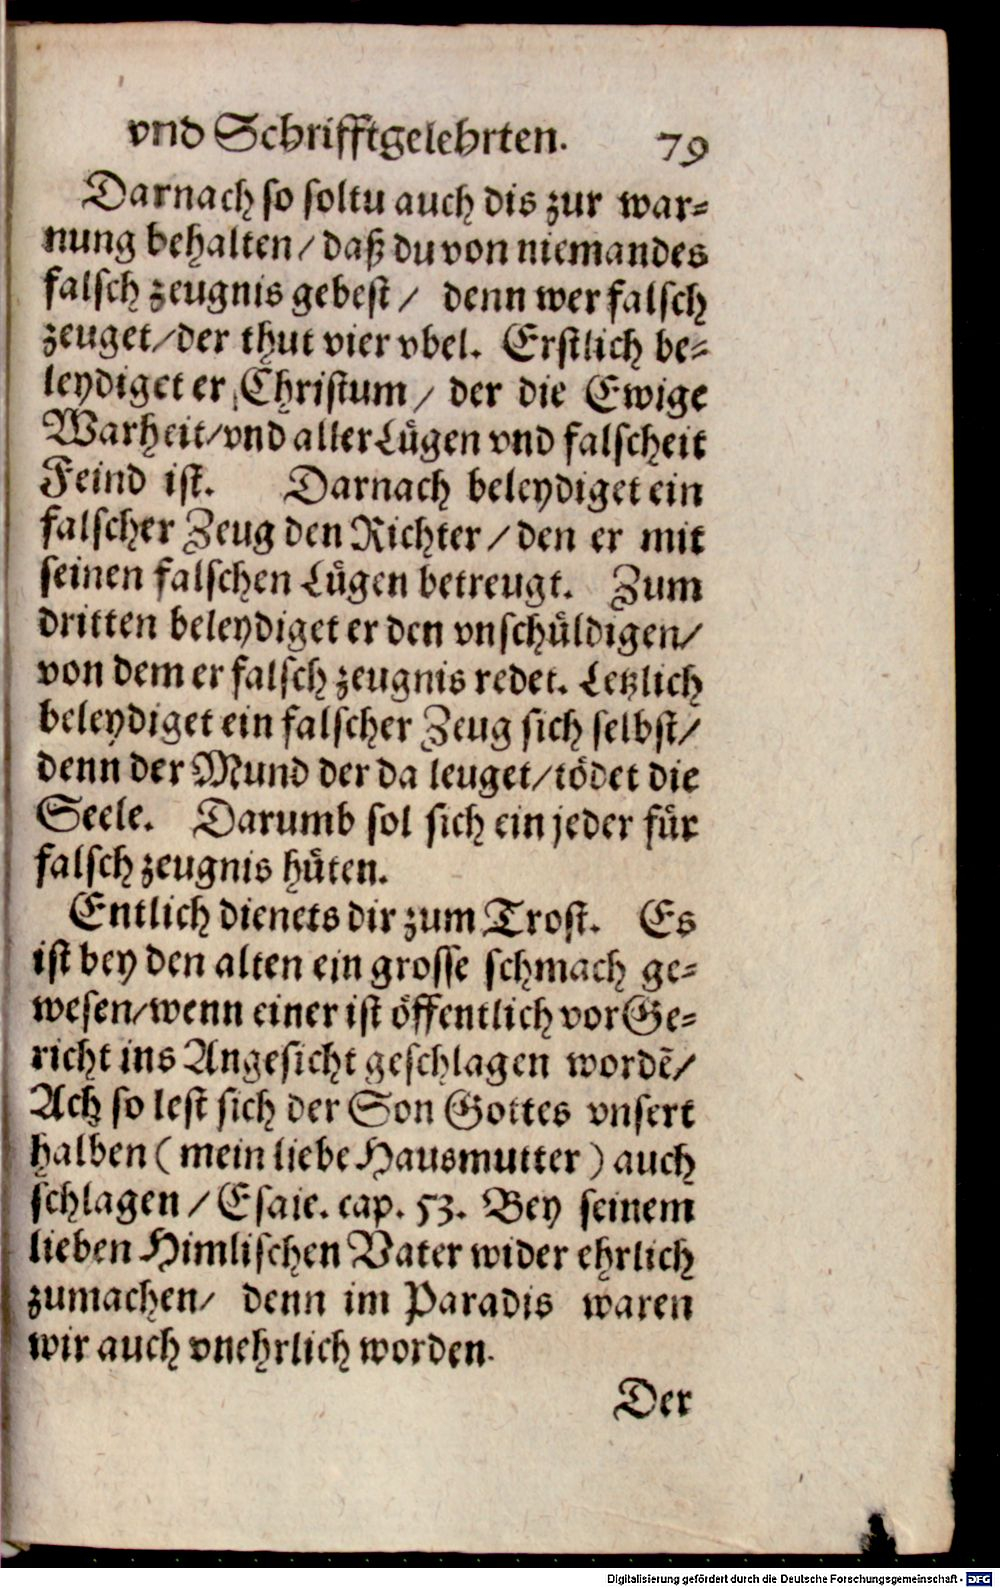 vnd Schrifftgelehrten. 79
Darnach so soltu auch dis zur war=
nung behalten / daß du von niemandes
falsch zeugnis gebest / denn wer falsch
zeuget/der thut vier vbel. Erstlich be=
leydiget er Christum / der die Ewige
Warheit/vnd aller Lügen vnd falscheit
Feind ist. Darnach beleydiget ein
falscher Zeug den Richter / den er mit
seinen falschen Lügen betreugt. Zum
dritten beleydiget er den vnschüldigen/
von dem er falsch zeugnis redet. Letzlich
beleydiget ein falscher Zeug sich selbst/
denn der Mund der da leuget/tödet die
Seele. Darumb sol sich ein jeder für
falsch zeugnis hüten.
Entlich dienets dir zum Trost. Es
ist bey den alten ein grosse schmach ge=
wesen/wenn einer ist öffentlich vor Ge=
richt ins Angesicht geschlagen wordẽ/
Ach so lest sich der Son Gottes vnsert
halben ( mein liebe Hausmutter ) auch
schlagen / Esaie. cap. 53. Bey seinem
lieben Himlischen Vater wider ehrlich
zumachen/ denn im Paradis waren
wir auch vnehrlich worden.
Der
Digitalisierung gefördert durch die Deutsche Forschungsgemeinschaft - DFG